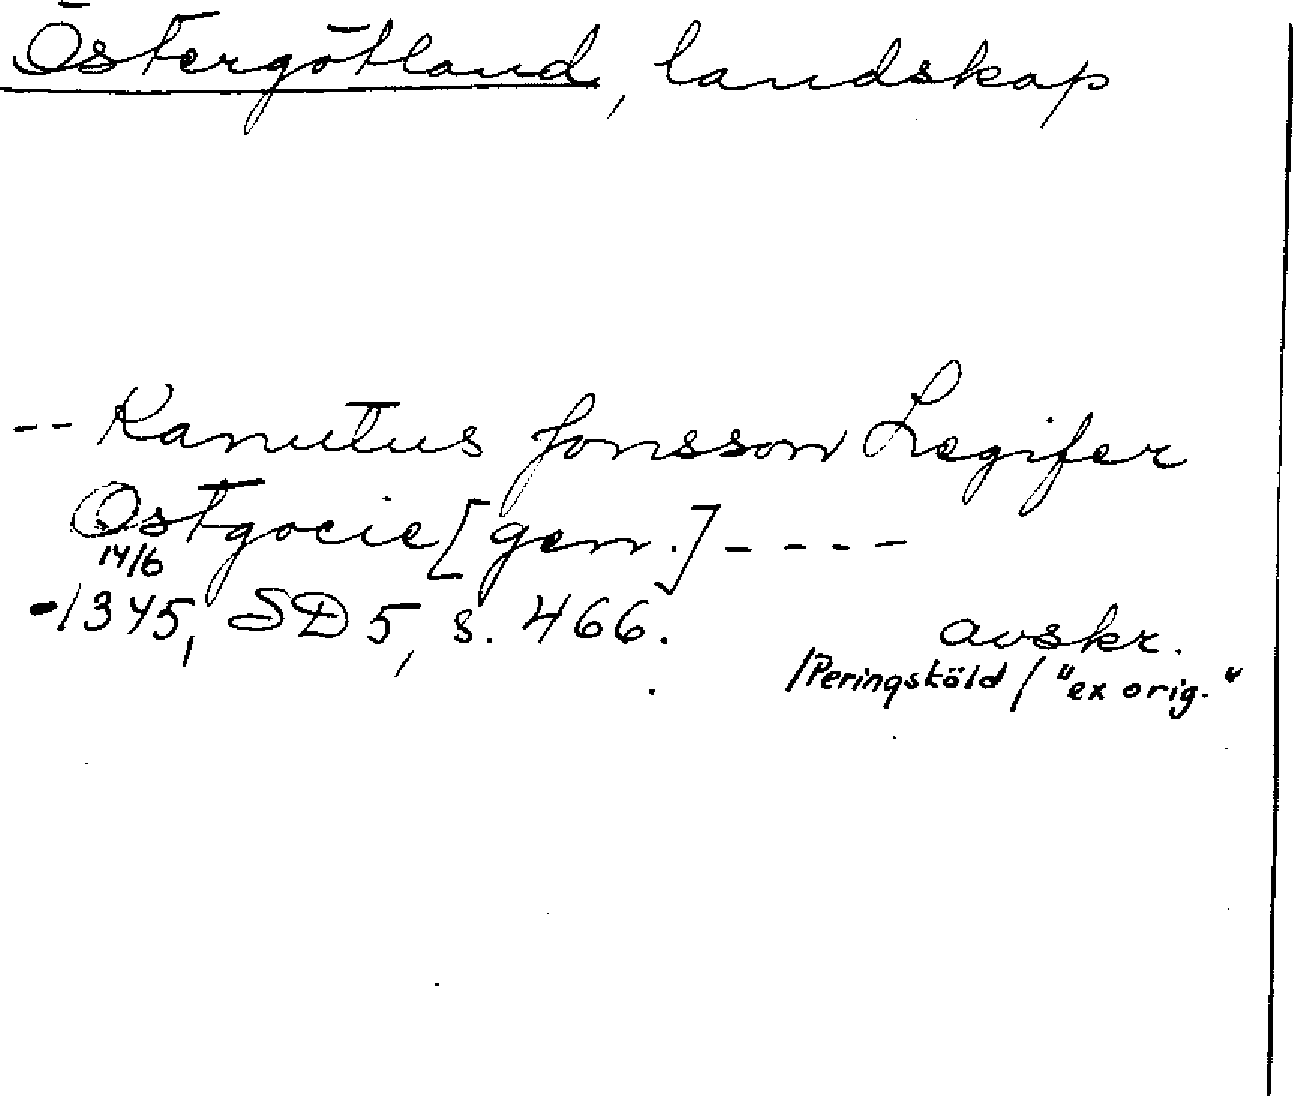 Östergötland, landskap
-- Kanutus Jonsson Legifer
Ostgocie [gen.] ----
14/6
-1345, SD 5, s. 466.
avskr.
/Peringsköld/ "ex orig."